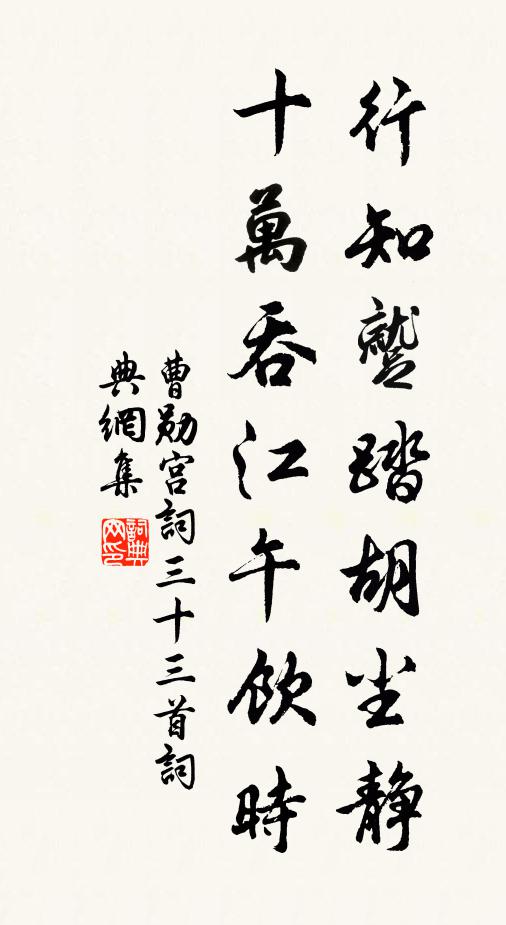 行知蹵踏胡尘静
十萬吞江午飲時
曹勛宮詞三十三首詞
典網集
詞典
网印